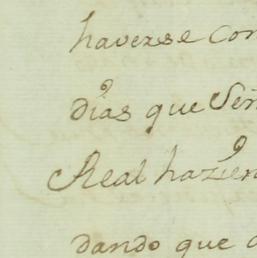 haverse con
dias que Señ
Real hazien
dando que